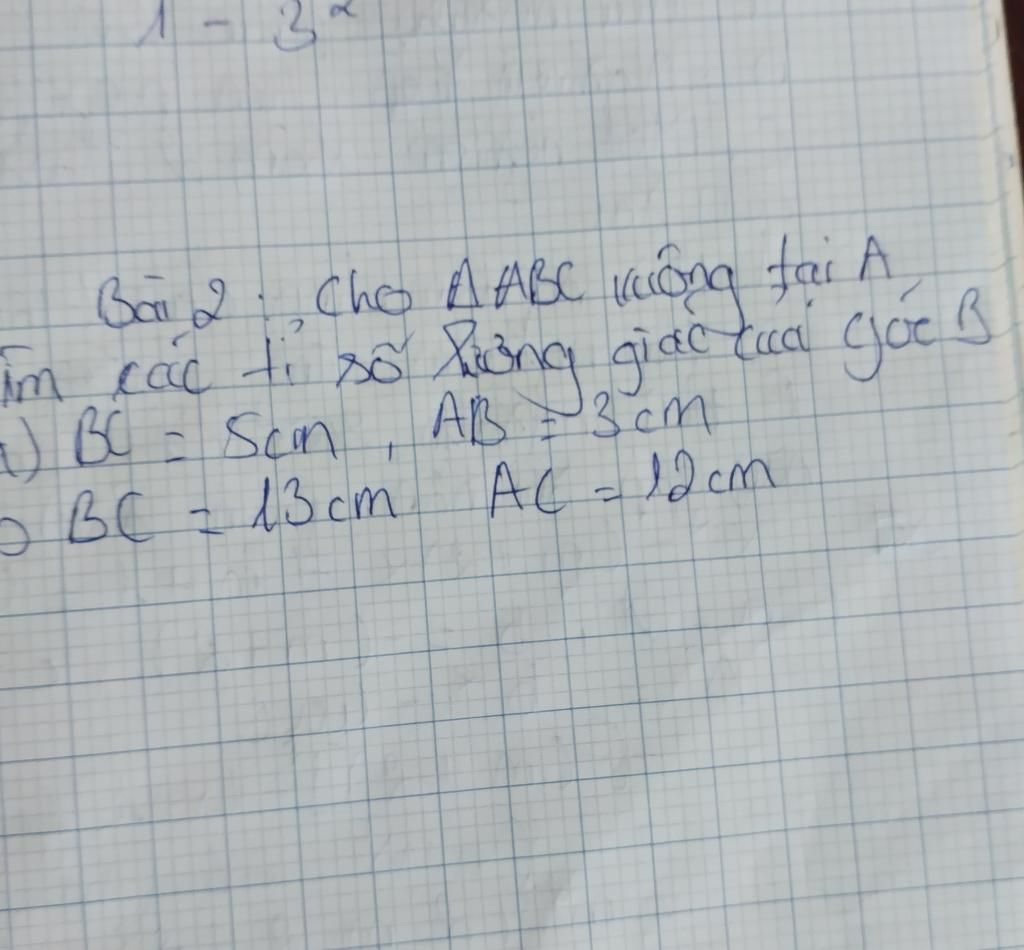 1 - 3²
Bài 2: Cho Δ ABC vuông tại A,
ìm các tỉ số lượng giác của góc B
) BC = 5cm, AB = 3cm
BC = 13cm AC = 12cm